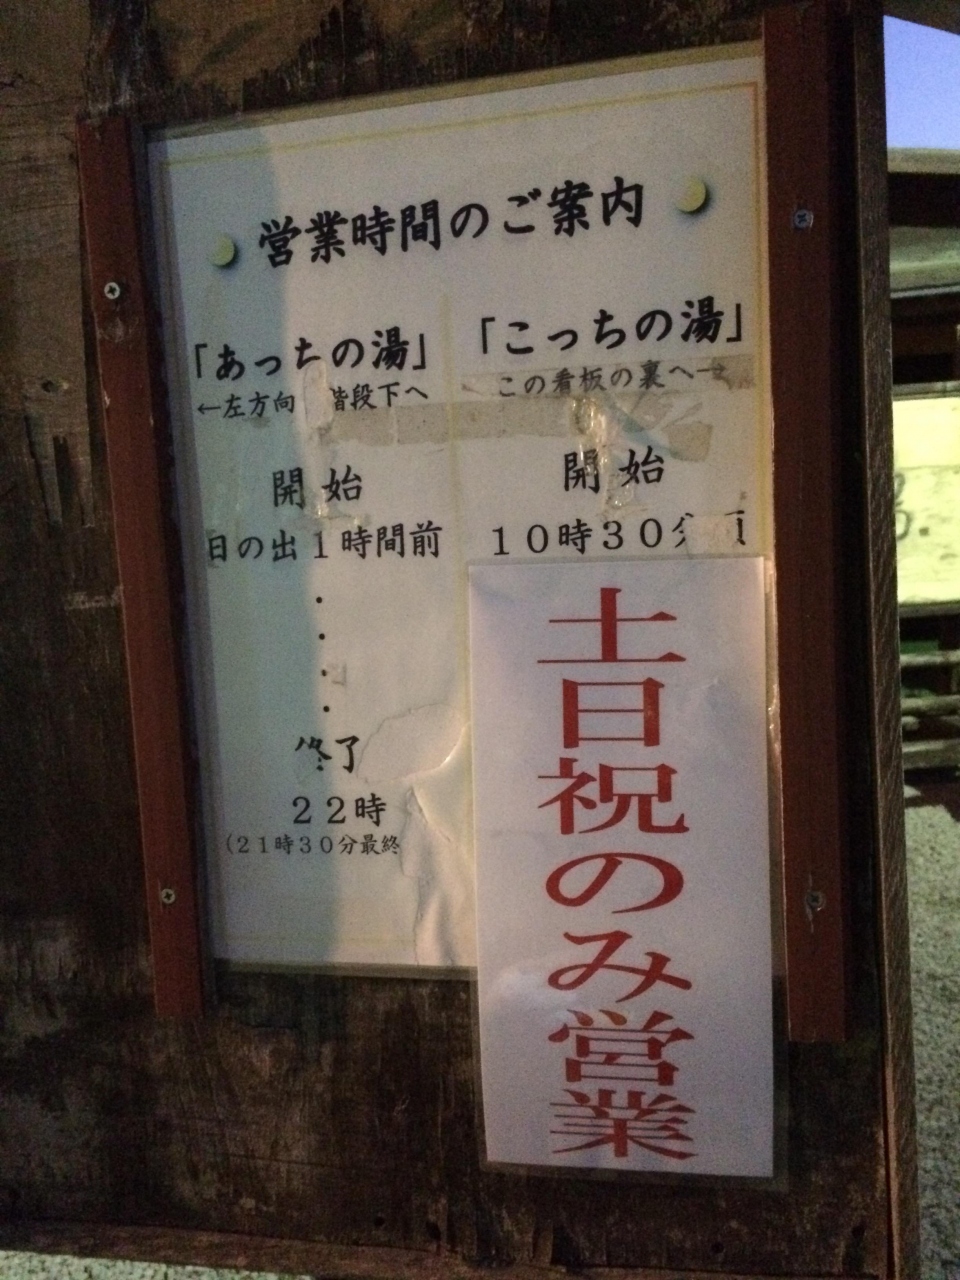 営業時間のご案内
「あっちの湯」
←左方向 階段下へ
開始
日の出1時間前
・
・
・
・
終了
22時
(21時30分最終
「こっちの湯」
この看板の裏へ→
開始
10時30分頃
土日祝のみ営業